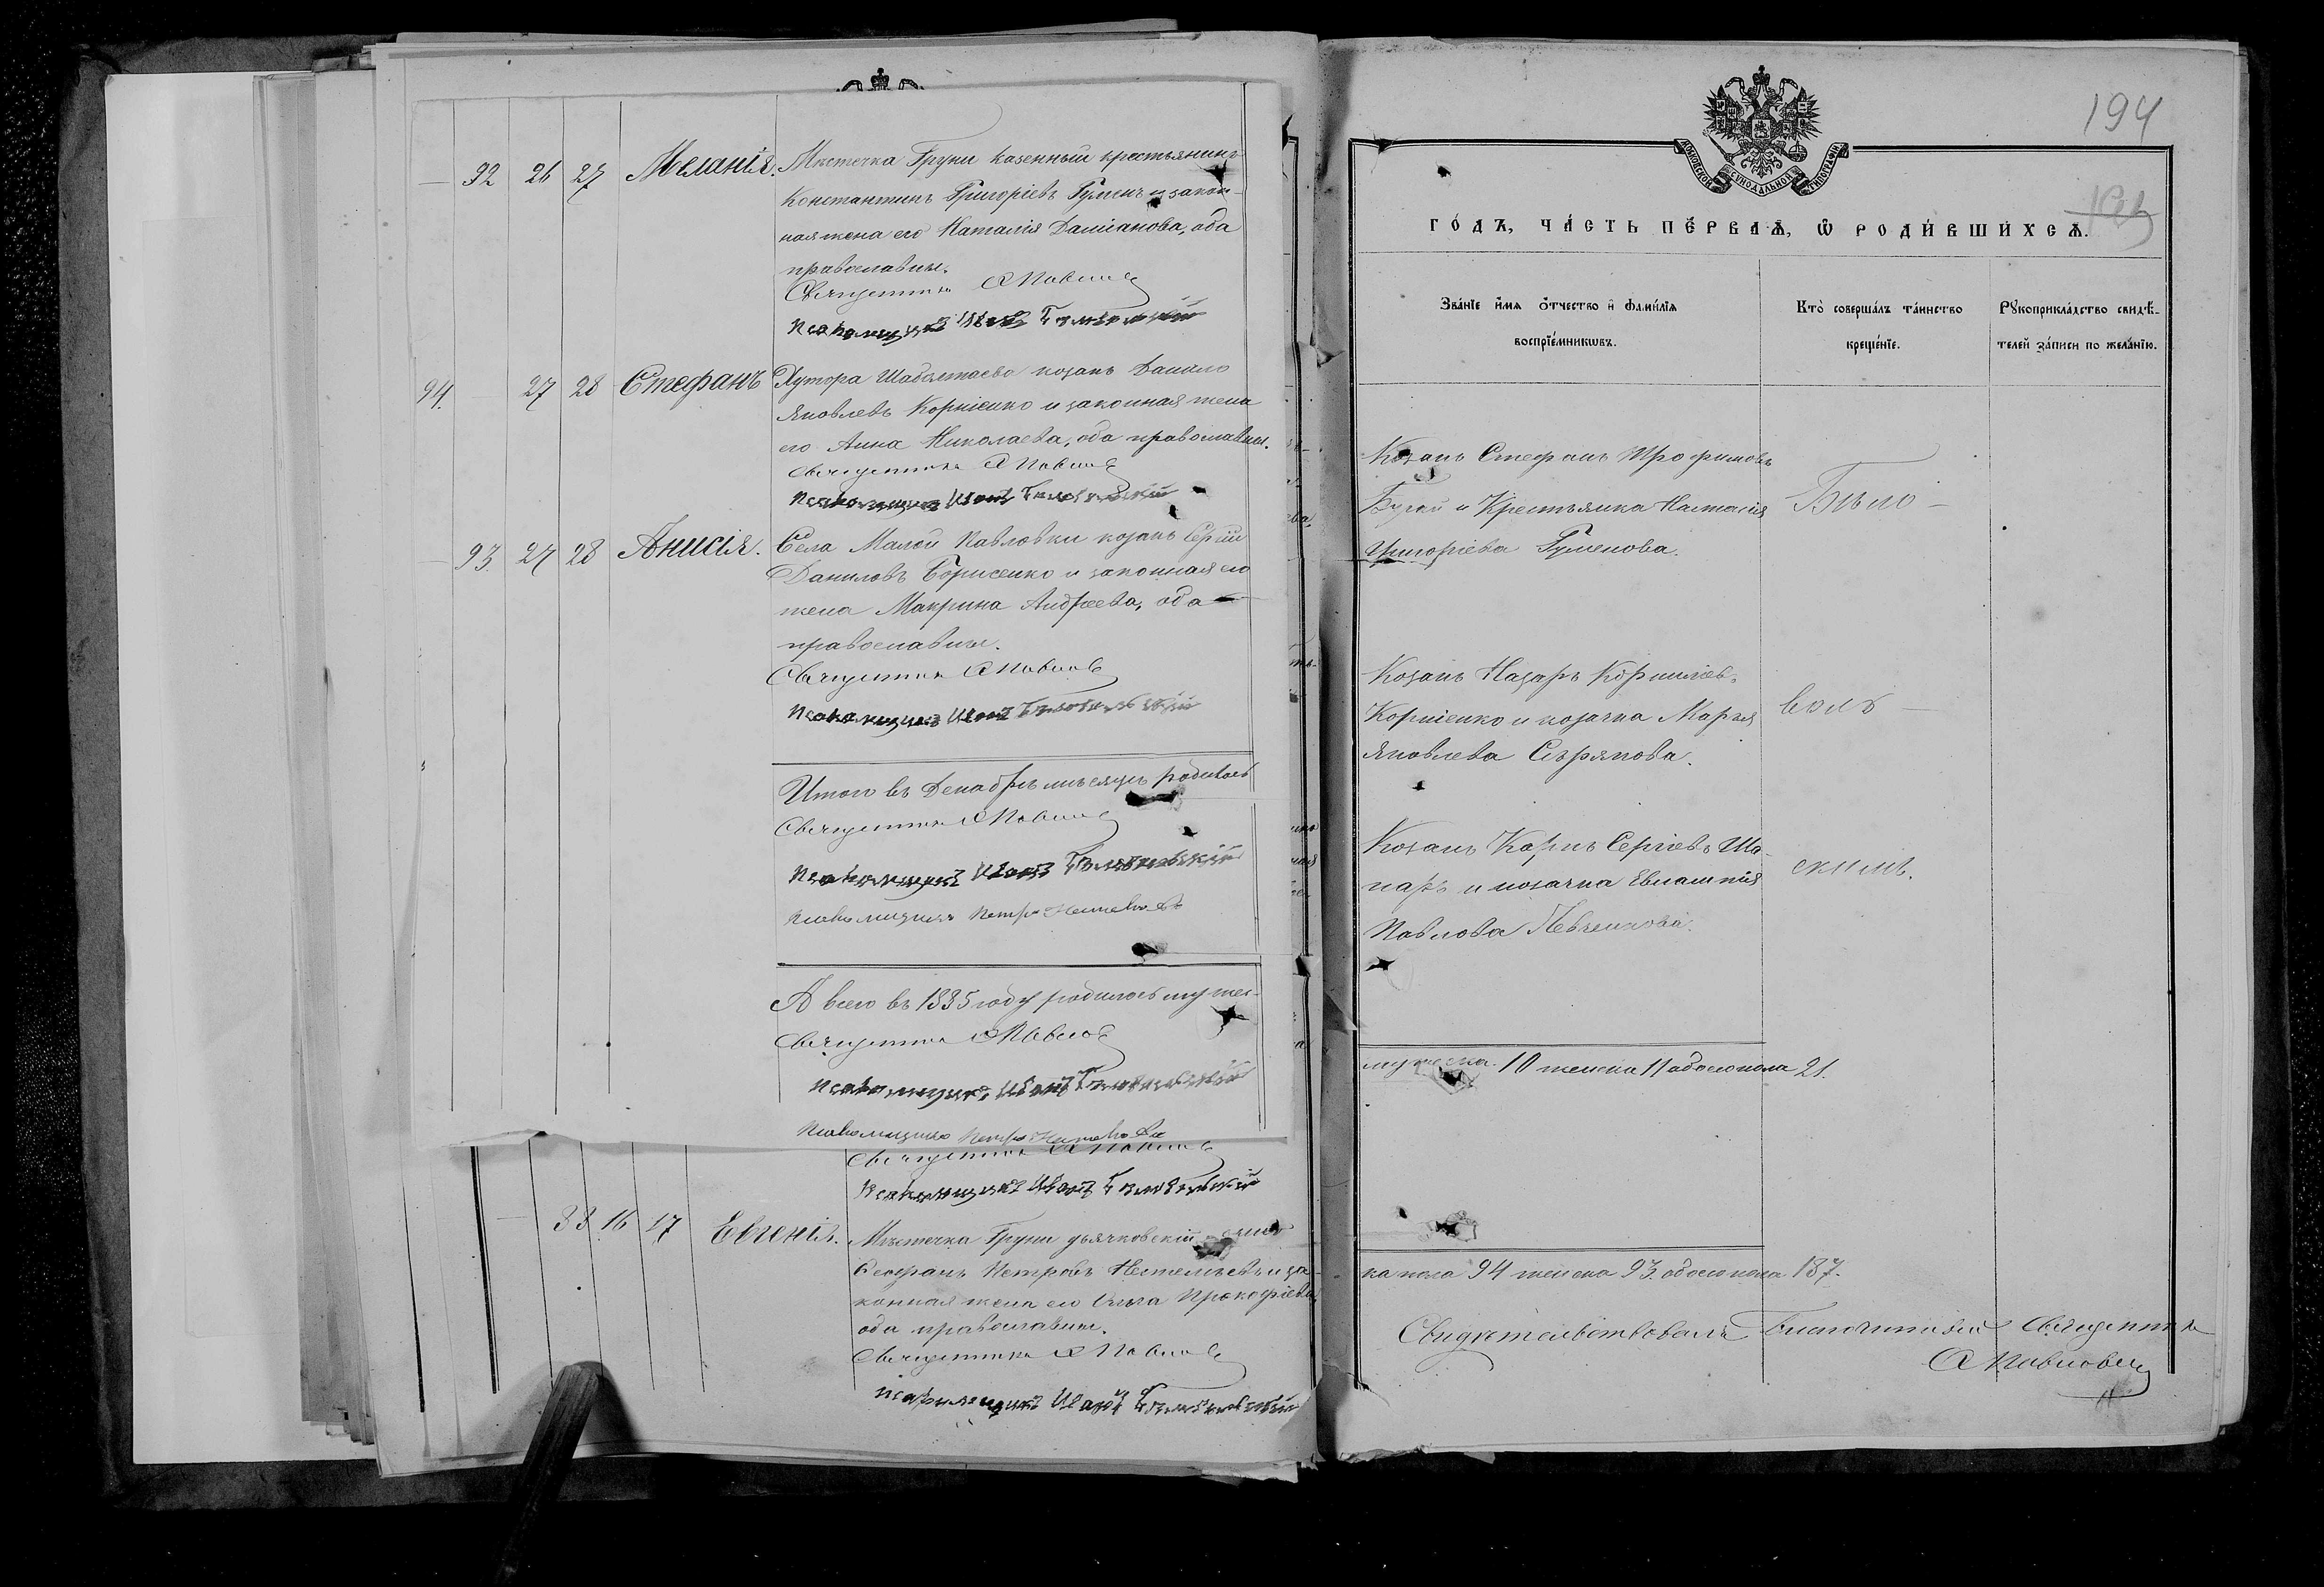 92 26 27 Меланія. Мѣстечка Груни казенный крестьянинъ
Константинъ Григоріевъ Гуменъ и закон-
ная жена его Наталія Даміанова, оба
православны.
Священникъ А Павлов
Псаломщикъ Иванъ
94. 27 28 Стефанъ Хутора козакъ Данило
Яковлевъ Корніенко и законная жена
его Анна Николаева, оба православны.
Священникъ А Павлов
Псаломщикъ Иванъ
93. 27 28 Анисія. Села Малой Павловки козакъ Сергій
Даниловъ Борисенко и законная его
жена Макрина Андреева, оба
православны.
Священникъ А Павлов
Псаломщикъ Иванъ
Итого въ Декабрѣ мѣсяцѣ родилось
Священникъ А Павлов
Псаломщикъ Иванъ
Псаломщикъ Петръ
А всего въ 1885 году родилось мужес-
Священникъ А Павлов
Псаломщикъ Иванъ
Псаломщикъ Петръ
Священникъ А Павлов
Псаломщикъ Иванъ
88 16 17 Евгенія. Мѣстечка Груни дьячковскій сынъ
Петровъ и за-
конная жена его Ольга Прокофіева,
оба православны.
Священникъ А Павлов
Псаломщикъ Иванъ
194
МОСКОВСКОЙ СѴНОДАЛЬНОЙ ТИПОГРАФІИ
ГО́ДЪ, ЧА́СТЬ ПЕ́РВАѦ, Ѡ҆ РОДИ́ВШИХСѦ.
Зва́нїе и҆́мѧ ѻ҆́тчество и҆ фами́лїѧ
воспрїе́мникѡвъ.
Кто̀ соверша́лъ та́инство
креще́нїе.
Рꙋкоприкла́дство свидѣ́-
телей за́писи по жела́нїю.
Козакъ Стефанъ Трофимовъ
Бугай и Крестьянка Наталія
Григоріева Гуменова.
Козакъ Назаръ Корниліев.
Корніенко и козачка Марья
Яковлева Сѣрякова.
Козакъ Карпъ Сергіевъ Ша-
паръ и козачка Евлампія
Павлова Левченкова.
Тѣмо-
вомъ
екимъ.
мужеска 10 женска 11 обоего пола 21.
ка пола 94 женска 93. обоего пола 187.
Свидѣтельствовалъ Благочинный Священникъ
А Павлов